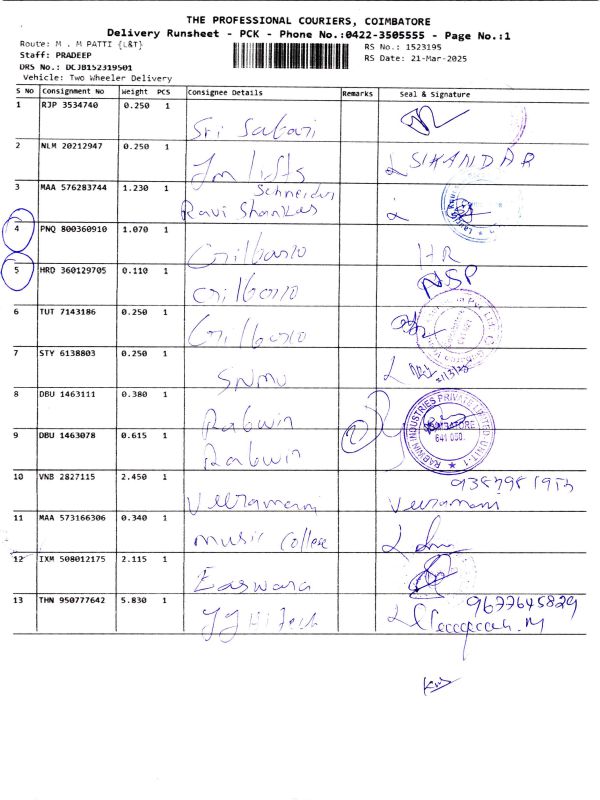 THE PROFESSIONAL COURIERS, COIMBATORE
Delivery Runsheet - PCK - Phone No.:0422-3505555 - Page No.:1
Route: M . M PATTI {L&T}
RS No.: 1523195
Staff: PRADEEP
RS Date: 21-Mar-2025
DRS No.: DCJB152319501
Vehicle: Two Wheeler Delivery
S No Consignment No Weight PCS Consignee Details Remarks Seal & Signature
1 RJP 3534740 0.250 1 Sri Sabari
2 NLM 20212947 0.250 1 Jm lifts SIKANDAR
3 MAA 576283744 1.230 1 Schneider
Ravi Shankar
4 PNQ 800360910 1.070 1 HR
5 HRD 360129705 0.110 1 NSP
6 TUT 7143186 0.250 1
7 STY 6138803 0.250 1 SNMV
8 DBU 1463111 0.380 1 Rabwin
RABWIN INDUSTRIES PRIVATE LIMITED UNIT-1
COIMBATORE
641 050.
9 DBU 1463078 0.615 1 Rabwin 2
10 VNB 2827115 2.450 1 Veeramani Veeramani
11 MAA 573166306 0.340 1 music college
12 IXM 508012175 2.115 1 Easwara
13 THN 950777642 5.830 1 JJ Hi Tech 9677645829